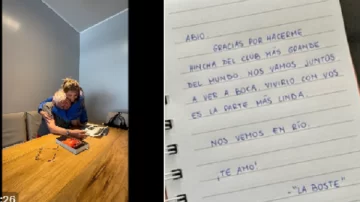 ABIO
GRACIAS POR HACERME
HINCHA DEL CLUB MÁS GRANDE
DEL MUNDO. NOS VAMOS JUNTOS
A VER A BOCA. VIVIRLO CON VOS
ES LA PARTE MÁS LINDA.
NOS VEMOS EN RÍO.
¡TE AMO!
-"LA BOSTE"
26